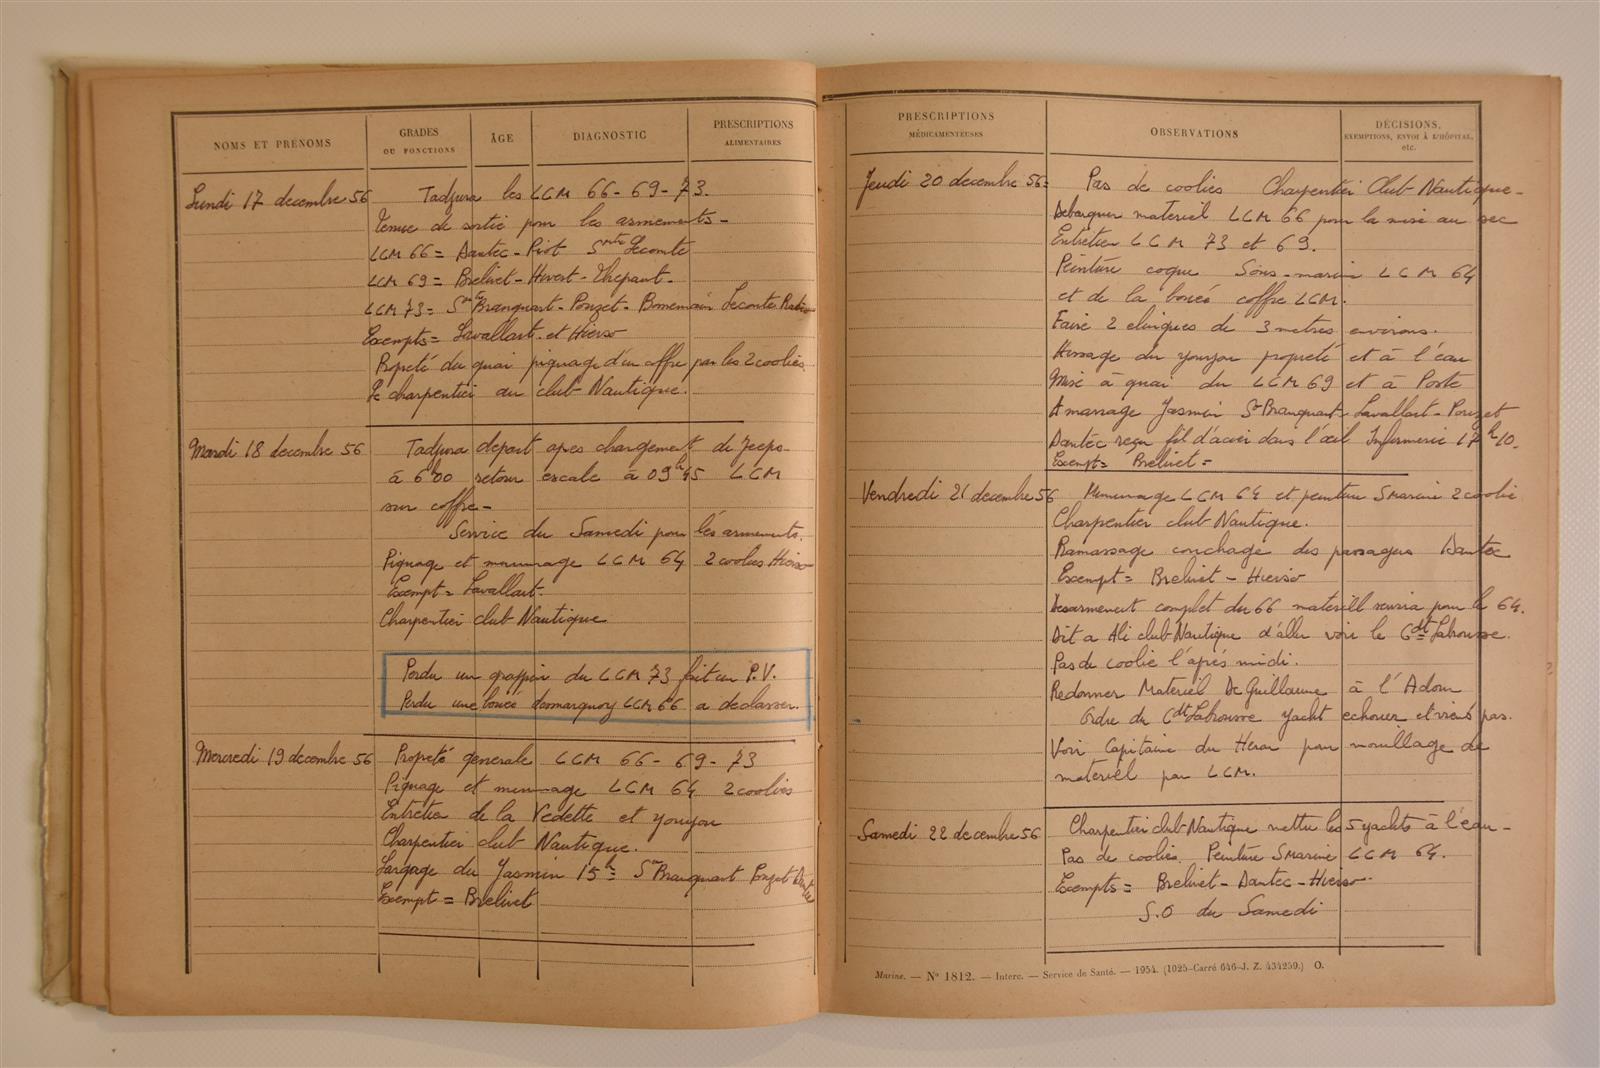 NOMS ET PRÉNOMS
GRADES
OU FONCTIONS
ÂGE
DIAGNOSTIC
PRESCRIPTIONS
ALIMENTAIRES
Lundi 17 decembre 56 Tadjura les LCM 66-69-73.
Tenue de sortie pour les armements-
LCM 66 = Dantec-Riot Lecomte
LCM 69 = Brelivet-Hivert-Thepaut-
LCM 73 = Branquart-Pouzet-Bonnemain Lecomte Radio
Exempts = Lavallart et Hierso
Propreté du quai piquage d'un coffre par les 2 coolies.
Le charpentier au club Nautique.
Mardi 18 decembre 56 Tadjura depart apres chargement de Jeeps-
à 6h00 retour escale à 09h45 LCM
sur coffre-
Service du Samedi pour les armements.
Piquage et LCM 64 2 coolies Hierso
Exempt = Lavallart-
Charpentier club Nautique
Perdu un grappin du LCM 73 fait un P.V.
Perdu une boueé LCM 66 a declasser.
Mercredi 19 decembre 56 Propreté generale LCM 66-69-73
Piquage et LCM 64 2 coolies
Entretien de la Vedette et youyou
Charpentier club Nautique.
Largage du Jasmin 15h= Branquart Pouzet Dantec
Exempt = Brelivet
PRESCRIPTIONS
MÉDICAMENTEUSES
OBSERVATIONS
DÉCISIONS,
EXEMPTIONS, ENVOI À L'HÔPITAL,
etc.
Jeudi 20 decembre 56= Pas de coolies Charpentier Club Nautique-
Debarquer materiel LCM 66 pour la mise au sec
Entretien LCM 73 et 69.
Peinture coque Sous-marin LCM 64
et de la boueé coffre LCM.
Faire 2 elingues de 3 metres environs.
Hissage du youyou propreté et à l'eau
Mise à quai du LCM 69 et à Poste
Amarrage Jasmin Branquart Lavallart-Pouzet
Dantec reçu fil d'acier dans l'œil Infirmerie 17h10.
Exempt= Brelivet=
Vendredi 21 decembre 56 LCM 64 et peinture SMarine 2 coolie
Charpentier club Nautique.
Ramassage couchage des passagers Dantec
Exempt = Brelivet-Hierso
Desarmement complet du 66 materiell pour le 64.
Dit a Ali club Nautique d'aller voir le Cdt Labrousse.
Pas de coolie l'après midi.
Redonner Materiel De Guillaume à l'Adour
Ordre du Cdt Labrousse yacht echouer et pas.
Voir Capitaine du Heron pour mouillage de
materiel par LCM.
Samedi 22 decembre 56 Charpentier club Nautique mettre les 5 yachts à l'eau-
Pas de coolies. Peinture SMarine LCM 64.
Exempts = Brelivet-Dantec-Hierso.
S.O du Samedi
Marine. — N° 1812. — Interc. — Service de Santé. — 1954. (1025-Carré 646-J. Z. 434259.) O.